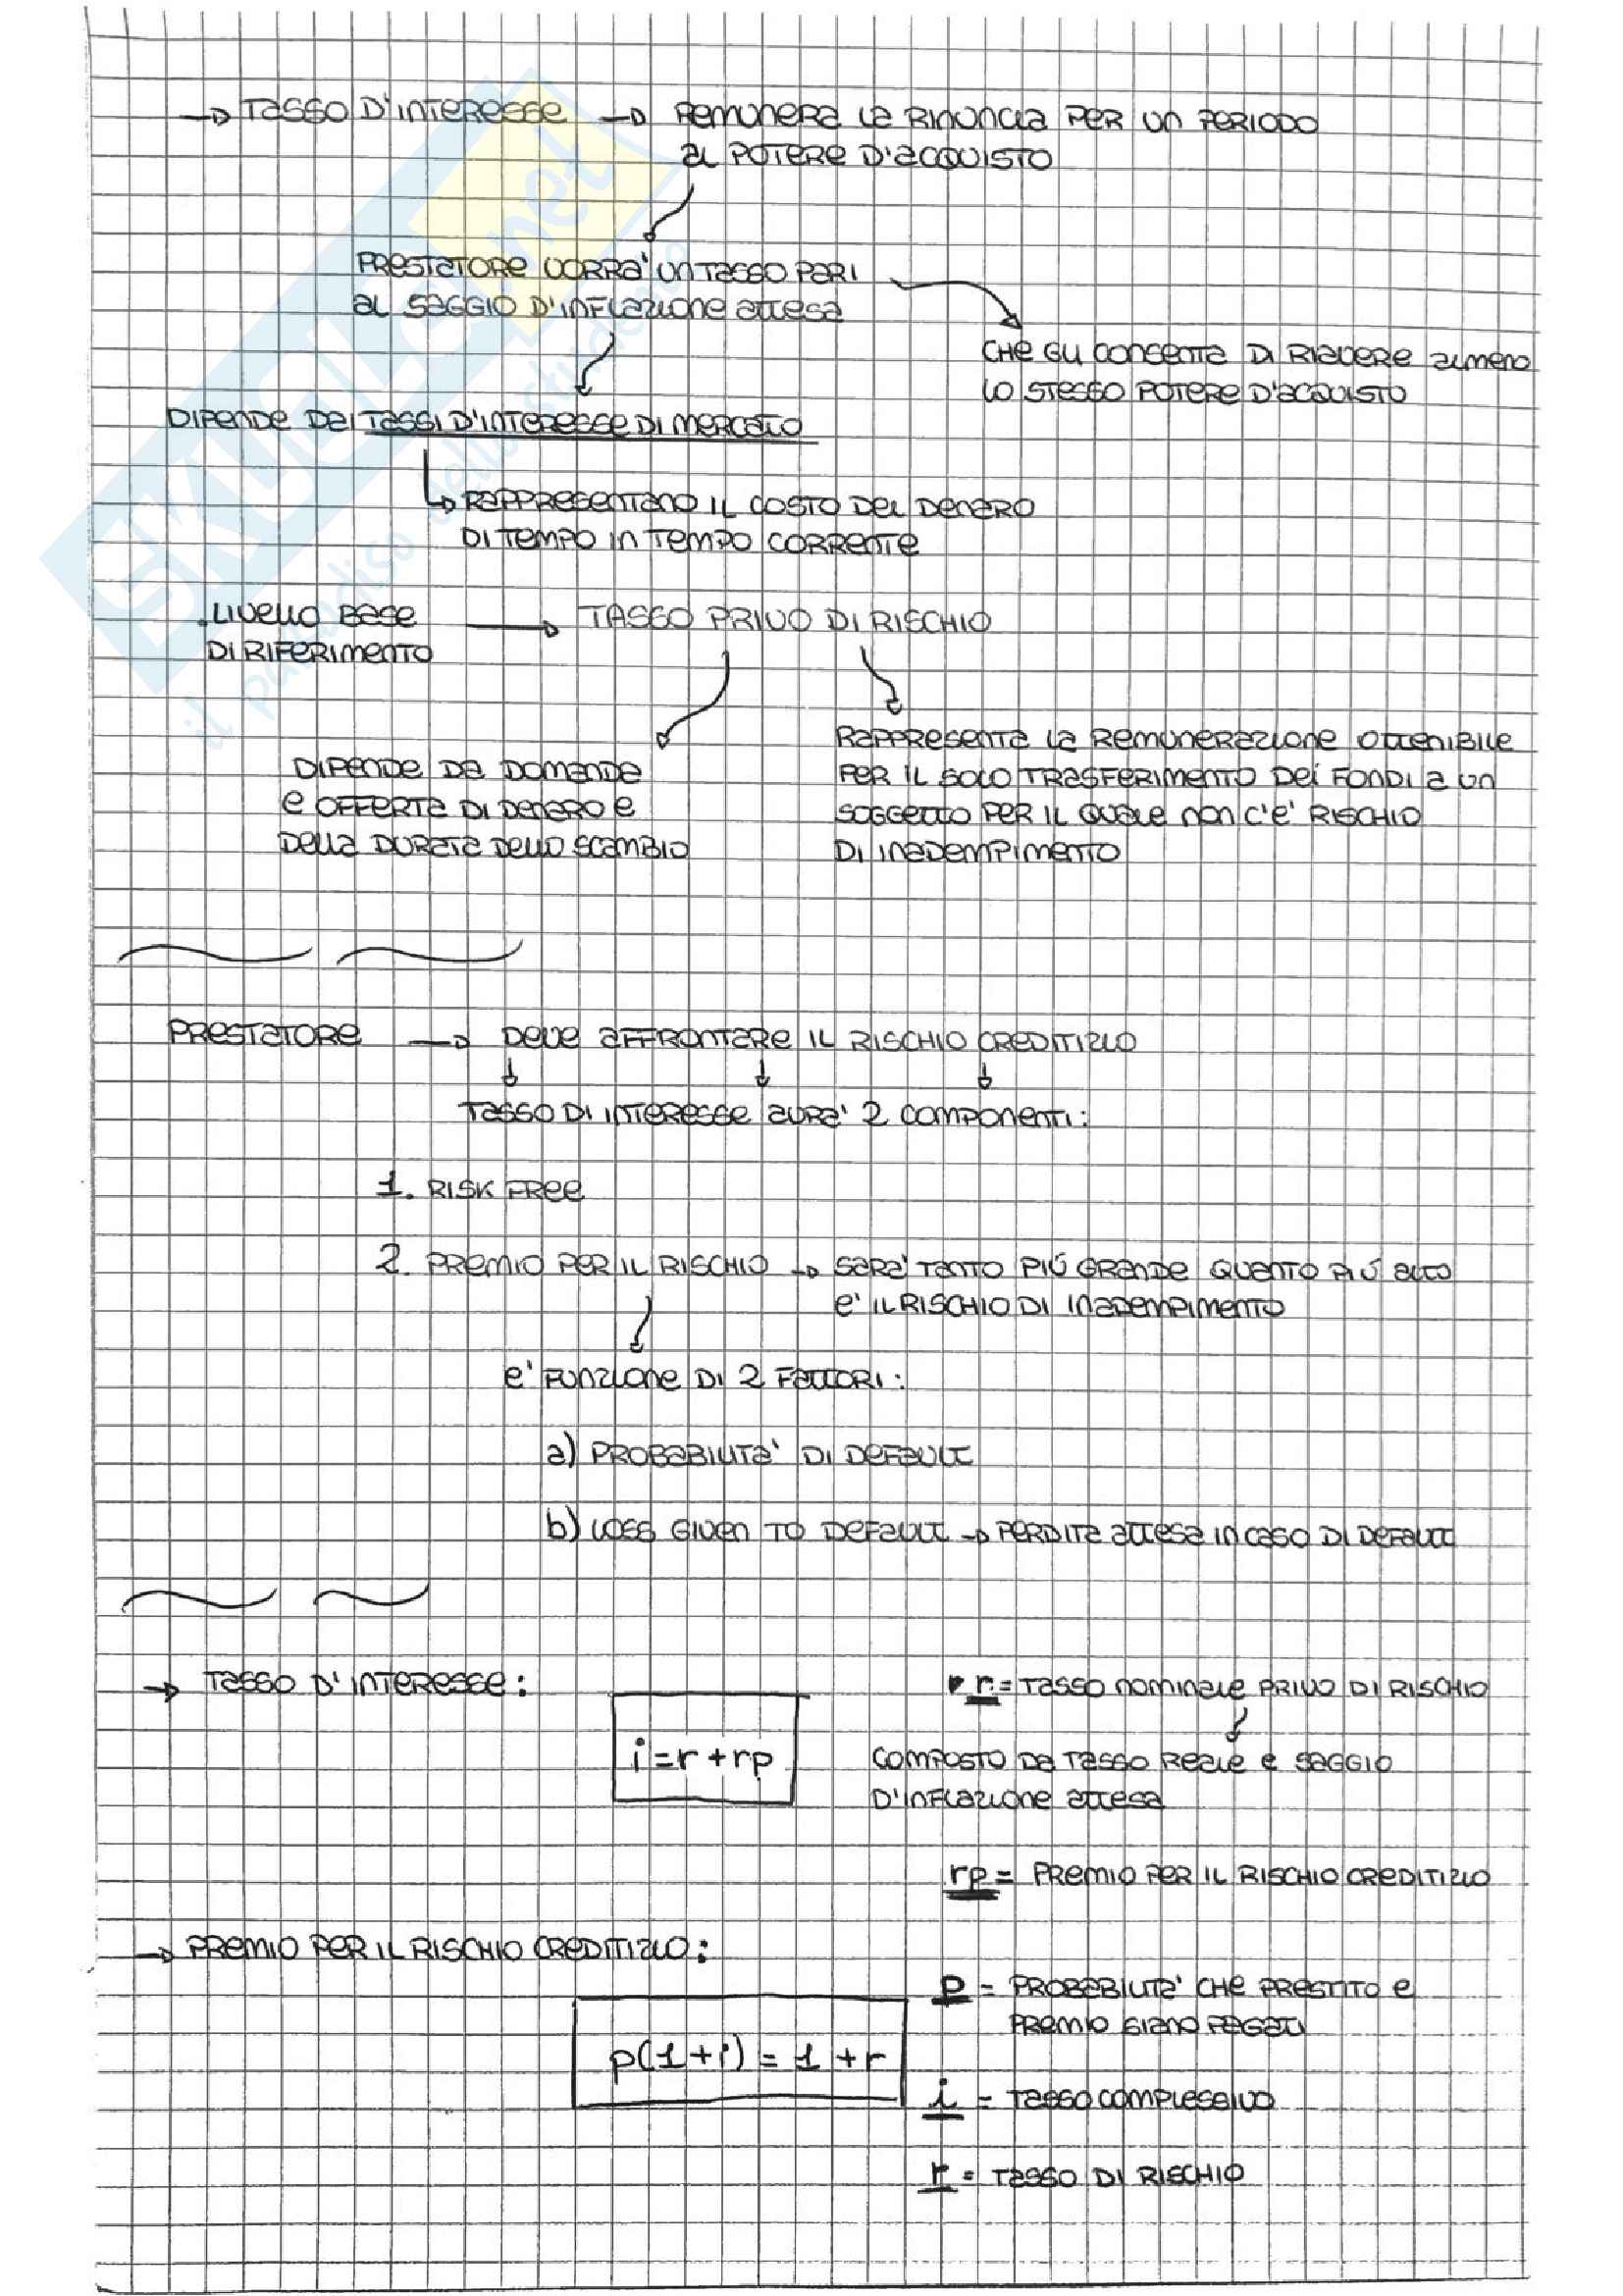 → TASSO D'INTERESSE → REMUNERA LA RINUNCIA PER UN PERIODO
AL POTERE D'ACQUISTO
PRESTATORE VORRA' UN TASSO PARI
AL SAGGIO D'INFLAZIONE ATTESA
CHE GLI CONSENTA DI RIAVERE ALMENO
LO STESSO POTERE D'ACQUISTO
DIPENDE DAI TASSI D'INTERESSE DI MERCATO
RAPPRESENTANO IL COSTO DEL DENARO
DI TEMPO IN TEMPO CORRENTE
. LIVELLO BASE → TASSO PRIVO DI RISCHIO
DI RIFERIMENTO
RAPPRESENTA LA REMUNERAZIONE OTTENIBILE
PER IL SOLO TRASFERIMENTO DEI FONDI A UN
SOGGETTO PER IL QUALE NON C'E' RISCHIO
DI INADEMPIMENTO
DIPENDE DA DOMANDA
E OFFERTA DI DENARO E
DELLA DURATA DELLO SCAMBIO
PRESTATORE → DEVE AFFRONTARE IL RISCHIO CREDITIZIO
TASSO DI INTERESSE AVRA' 2 COMPONENTI:
1. RISK FREE
2. PREMIO PER IL RISCHIO → SARA' TANTO PIÚ GRANDE QUANTO PIÚ ALTO
E' IL RISCHIO DI INADEMPIMENTO
E' FUNZIONE DI 2 FATTORI:
a) PROBABILITA' DI DEFAULT
b) LOSS GIVEN TO DEFAULT → PERDITA ATTESA IN CASO DI DEFAULT
→ TASSO D'INTERESSE:
i = r + rp
r = TASSO NOMINALE PRIVO DI RISCHIO
COMPOSTO DA TASSO REALE E SAGGIO
D'INFLAZIONE ATTESA
rp = PREMIO PER IL RISCHIO CREDITIZIO
→ PREMIO PER IL RISCHIO CREDITIZIO:
p(1+i) = 1 + r
P = PROBABILITA' CHE PRESTITO E
PREMIO SIANO PAGATI
i = TASSO COMPLESSIVO
r = TASSO DI RISCHIO
SKUOLA.net
il paradiso dello studente